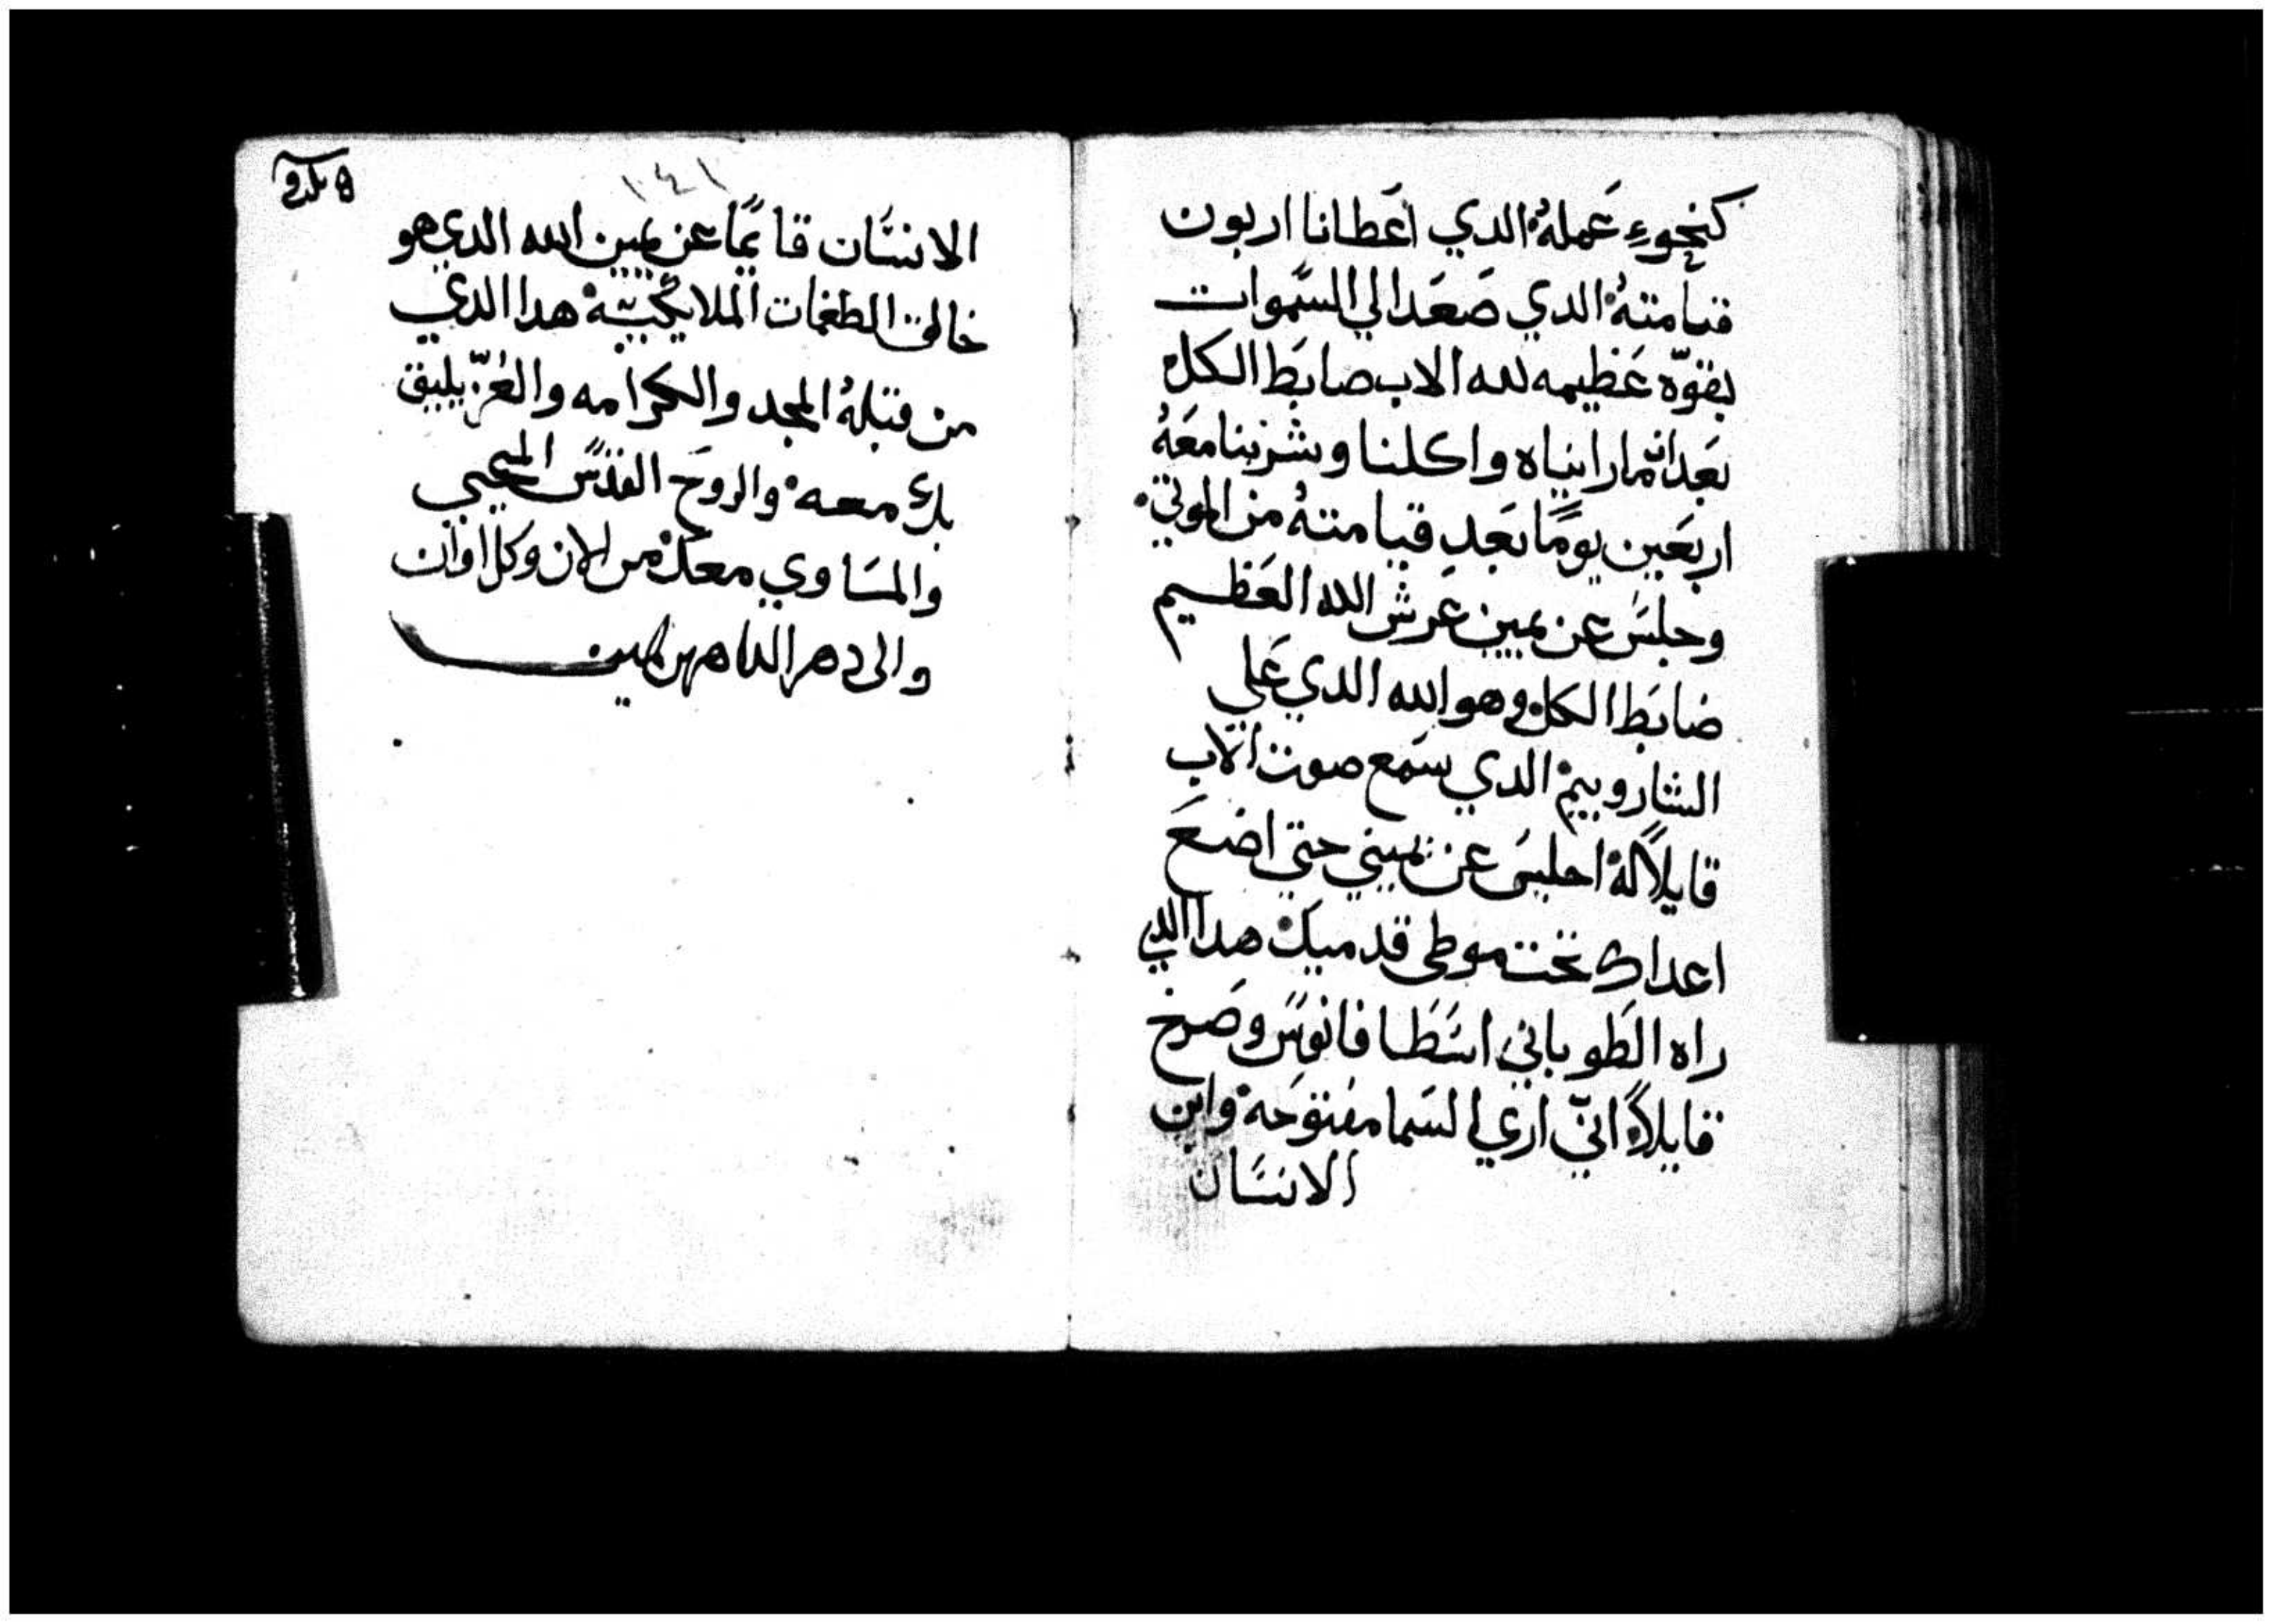 كنحوء عمله الدي اعطانا اربون
قيامته الدي صعد الي السموات
بقوه عظيمه لله الاب ضابط الكل
بعد انما رايناه واكلنا وشربنا معه
اربعين يومًا بعد قيامته من الموتي
وجلس عن يمين عرش الله العظيم
ضابط الكل وهو الله الدي علي
الشاروبيم الدي سمع صوت الاب
قايلاً له اجلس عن يميني حتي اضع
اعداك تحت موطى قدميك هدا الدي
راه الطوباني اسطافانوس وصرخ
قايلاً اني اري السما مفتوحة وابن
الانسان
١٤١
الانسان قايمًا عن يمين الله الدي هو
خالق الطغمات الملايكية هدا الدي
من قبله المجد والكرامه والعز يليق
بك معه والروح القدس المحيي
والمساوي معك من الان وكل اوان
والى دهر الداهرين امين